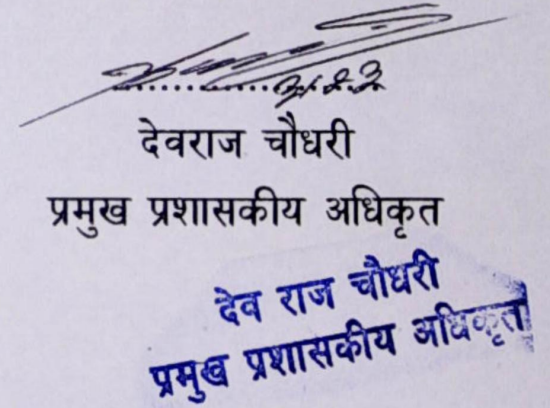 देवराज चौधरी
प्रमुख प्रशासकीय अधिकृत
देव राज चौधरी
प्रमुख प्रशासकीय अधिकृत